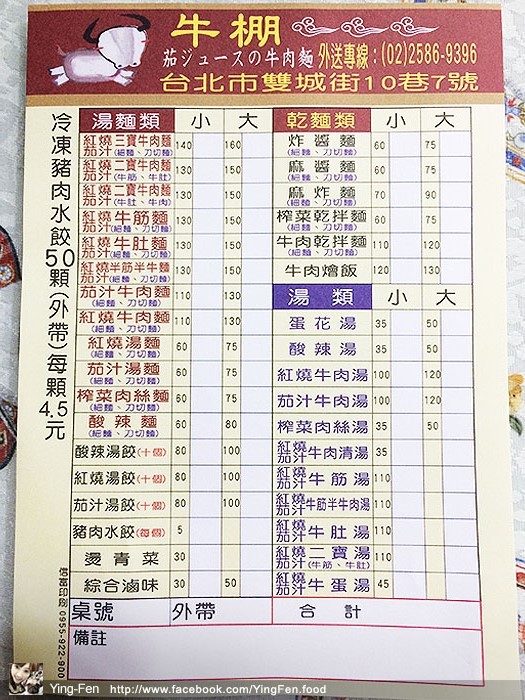 牛棚
茄ジュースの牛肉麵 外送專線：(02)2586-9396
台北市雙城街10巷7號
冷凍豬肉水餃50顆(外帶)每顆4.5元
湯麵類 小 大
紅燒 茄汁 三寶牛肉麵 (細麵、刀切麵) 140 160
紅燒 茄汁 二寶牛肉麵 (牛筋、牛肚) 130 150
紅燒 茄汁 二寶牛肉麵 (牛肚、牛肉) 130 150
紅燒 茄汁 牛筋麵 (細麵、刀切麵) 130 150
紅燒 茄汁 牛肚麵 (細麵、刀切麵) 130 150
紅燒 茄汁 半筋半牛麵 (細麵、刀切麵) 130 150
茄汁牛肉麵 (細麵、刀切麵) 110 130
紅燒牛肉麵 (細麵、刀切麵) 110 130
紅燒湯麵 (細麵、刀切麵) 60 75
茄汁湯麵 (細麵、刀切麵) 60 75
榨菜肉絲麵 (細麵、刀切麵) 60 75
酸辣麵 (細麵、刀切麵) 60 80
酸辣湯餃(十個) 80 100
紅燒湯餃(十個) 80 100
茄汁湯餃(十個) 80 100
豬肉水餃(每個) 5
燙青菜 30
綜合滷味 30 50
乾麵類 小 大
炸醬麵 (細麵、刀切麵) 60 75
麻醬麵 (細麵、刀切麵) 60 75
麻炸麵 (細麵、刀切麵) 70 90
榨菜乾拌麵 (細麵、刀切麵) 60 75
牛肉乾拌麵 (細麵、刀切麵) 110 120
牛肉燴飯 120 130
湯類 小 大
蛋花湯 35 50
酸辣湯 35 50
紅燒牛肉湯 100 120
茄汁牛肉湯 100 120
榨菜肉絲湯 35 50
紅燒 茄汁 牛肉清湯 35
紅燒 茄汁 牛筋湯 110
紅燒 茄汁 牛筋半牛肉湯 110
紅燒 茄汁 牛肚湯 110
紅燒 茄汁 二寶湯 (牛筋、牛肚) 110
紅燒 茄汁 牛蛋湯 45
桌號 外帶 合計
備註
0955-922-900
Ying-Fen http://www.facebook.com/YingFen.food